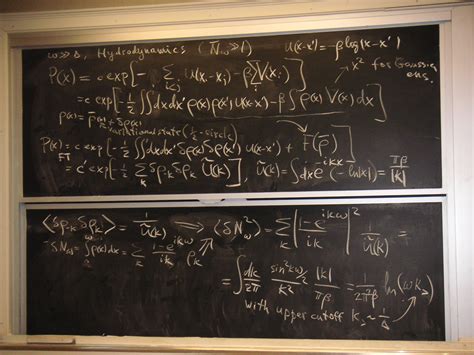 ω>>Δ, Hydrodynamics (N̄_ω>>1) u(x-x') = -β log(x-x')
P(x) = c exp[- Σ_{i<j} u(x_i-x_j) - β Σ_i V(x_i)] x² for Gaussian ens.
= c exp[-1/2 ∫∫dxdx' ρ(x)ρ(x') u(x-x') - β∫ρ(x) V(x)dx]
ρ(x) = ρ̄(x)+δρ(x)
variational state (1/2-circle)
P(x) = c' exp[-1/2 ∫∫dxdx' δρ(x)δρ(x') u(x-x') + F(ρ̄)]
FT = c' exp[-1/2 Σ_k δρ_k δρ_k ũ(k)], ũ(k) = ∫dx e^{-ikx} (-ln|x|) = πβ/|k|
<δρ_k δρ_k> = 1/ũ(k) ⟹ <δN_ω²> = Σ_k |(1-e^{ikω})/ik|² 1/ũ(k)
δN_ω = ∫ρ(x)dx = Σ_k (1-e^{ikω})/ik ρ_k
= ∫dk/2π sin² kω/2 / k² |k|/πβ = 1/2π²β ln(ωk_>)
with upper cutoff k_> ~ 1/Δ